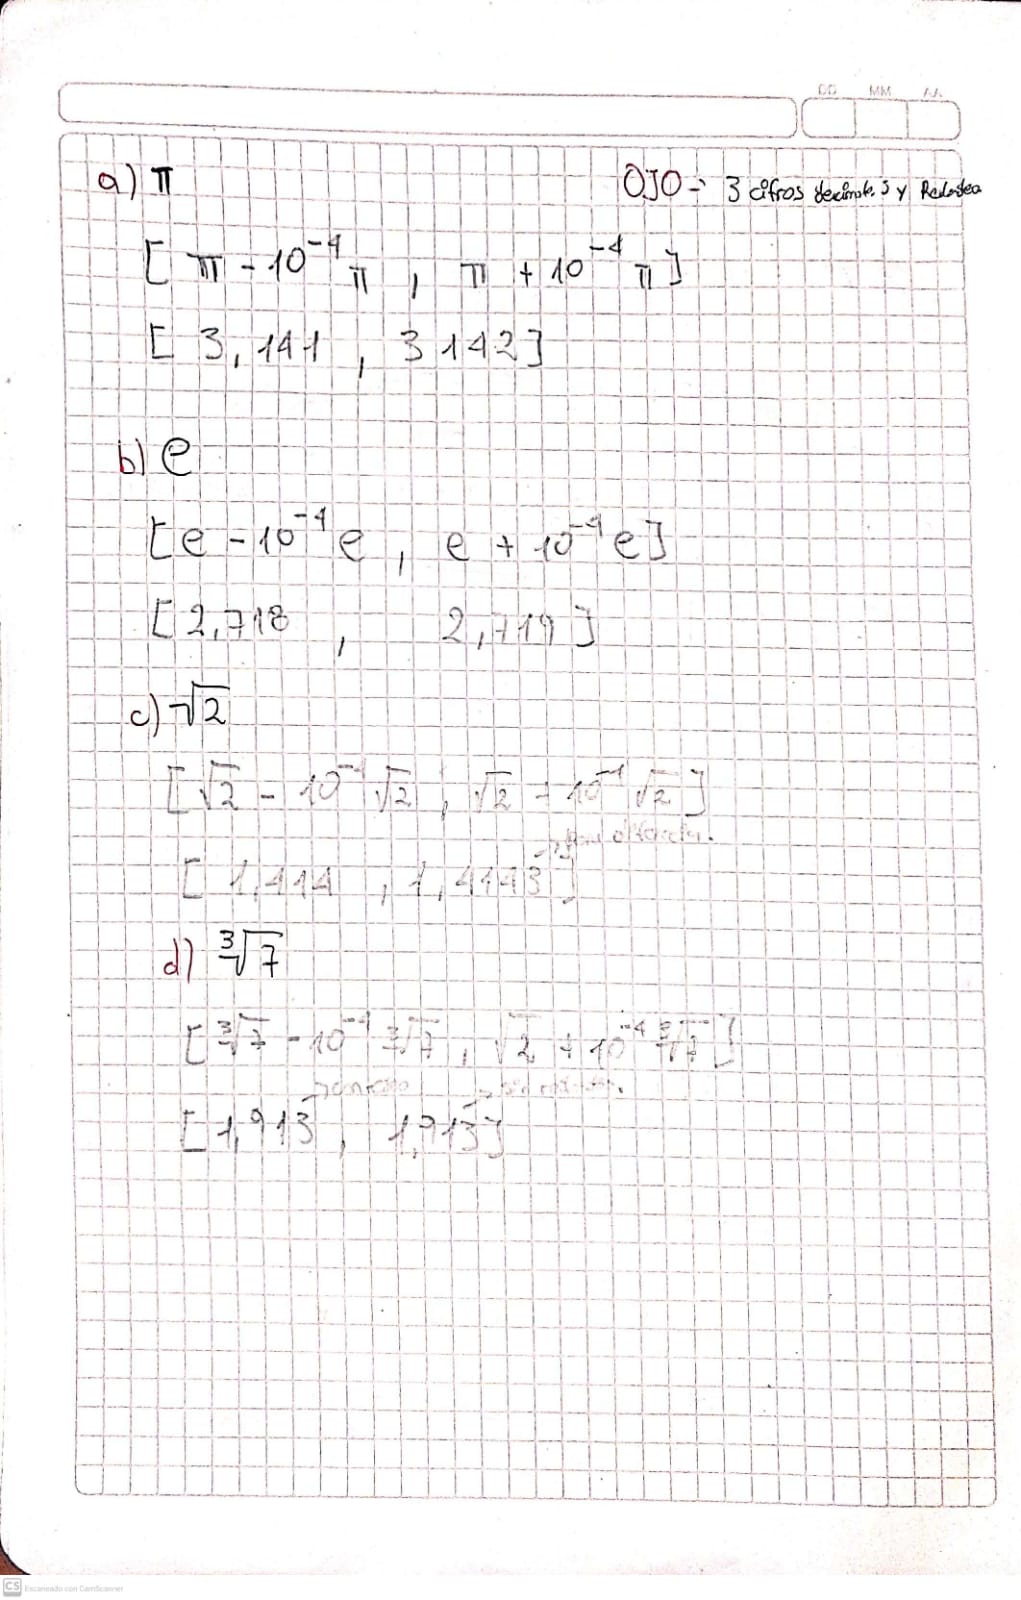 DD MM AA
a) π OJO-: 3 cifras decimales y Redondea
[ π - 10⁻⁴ π , π + 10⁻⁴ π ]
[ 3,141 , 3 142 ]
b) e
[ e - 10⁻⁴ e , e + 10⁻⁴ e ]
[ 2,718 , 2,719 ]
c) √2
[ √2 - 10⁻⁴ √2 , √2 + 10⁻⁴ √2 ]
[ 1,414 , 1,4143 ]
d) ∛7
[ ∛7 - 10⁻⁴ ∛7 , √2 + 10⁻⁴ ∛7 ]
[ 1,913 , 1,913 ]
CS Escaneado con CamScanner